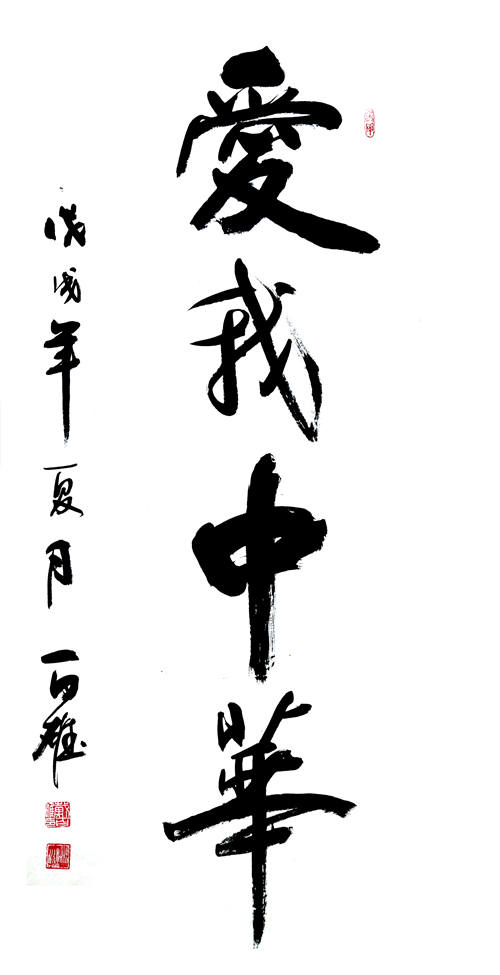 愛我中華
戊戌年夏月百雄